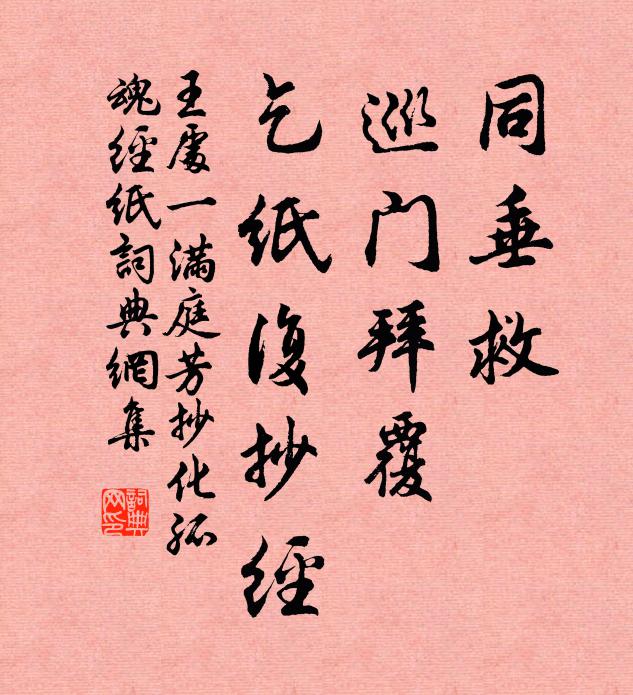 同垂救
巡门拜覆
乞纸復抄經
王處一满庭芳抄化孤
魂經纸詞典網集
詞典网印